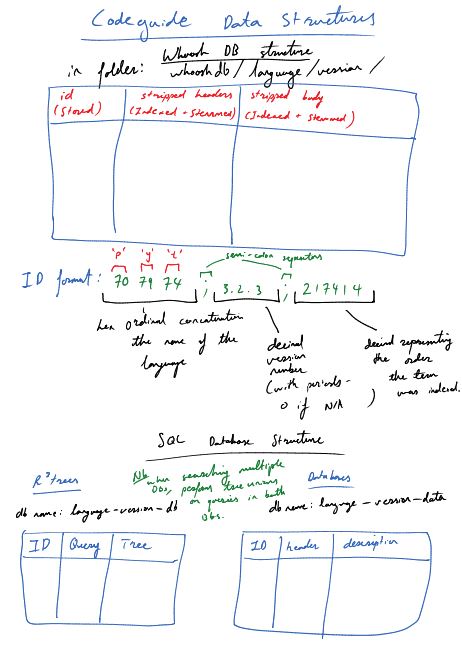 Codeguide Data Structures
Whoosh DB structure
in folder: whooshdb/language/version/
id
(Stored)
stripped headers
(Indexed + Stemmed)
stripped body
(Indexed + Stemmed)
'p' 'y' 't'
semi-colon separators
ID format: 70 79 74 ; 3.2.3 ; 217414
hex ordinal concatenation
the name of the
language
decimal
version
number
(with periods -
0 if N/A)
decimal representing
the order
the term
was indexed.
SQL Database Structure
R³trees
db name: language-version-db
Nb when searching multiple
DBs, perform tree unions
on queries in both
DBs.
Databases
db name: language-version-data
ID Query Tree
ID header description